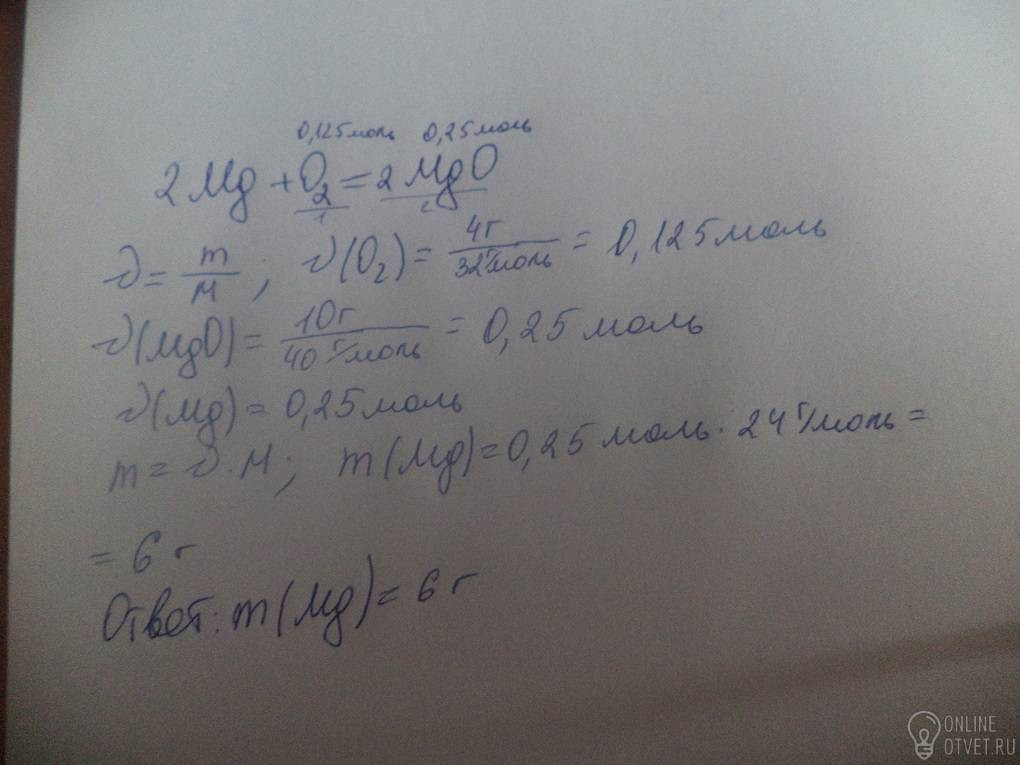 0,125моль 0,25моль
2Mg + O₂ = 2MgO
1 2
ν = m/M ; ν(O₂) = 4г/32г/моль = 0,125моль
ν(MgO) = 10г/40г/моль = 0,25моль
ν(Mg) = 0,25моль
m = ν · M ; m(Mg) = 0,25моль · 24г/моль =
= 6 г
Ответ: m(Mg) = 6 г
ONLINE
OTVET.RU